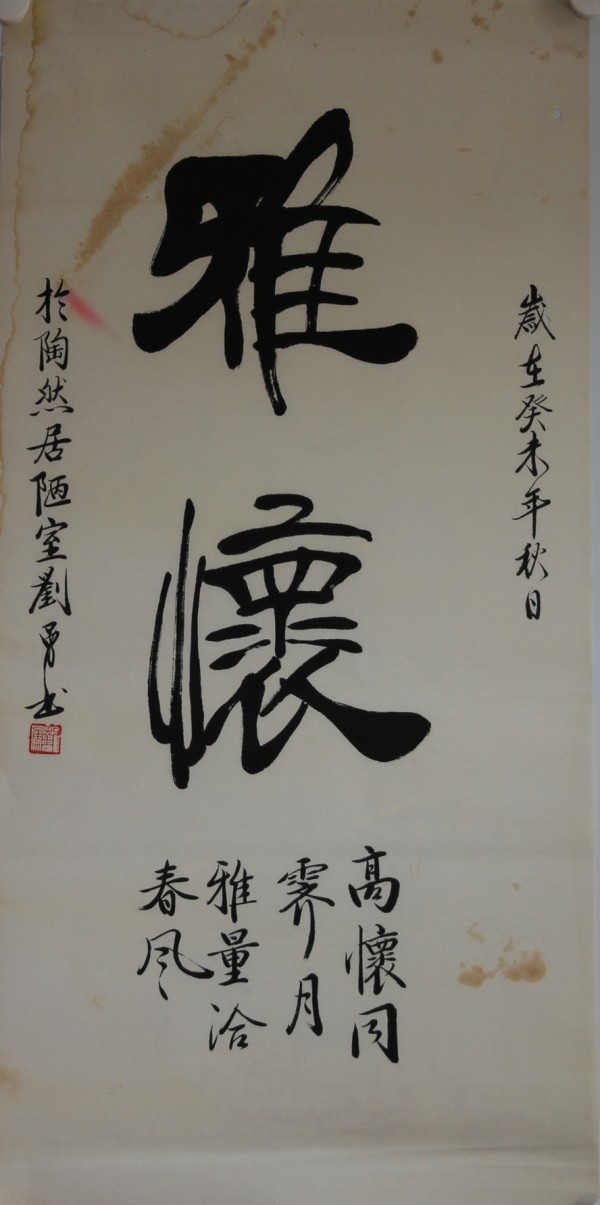 歲在癸未年秋日
雅懷
高懷同
霽月
雅量洽
春風
於陶然居陋室劉勇书